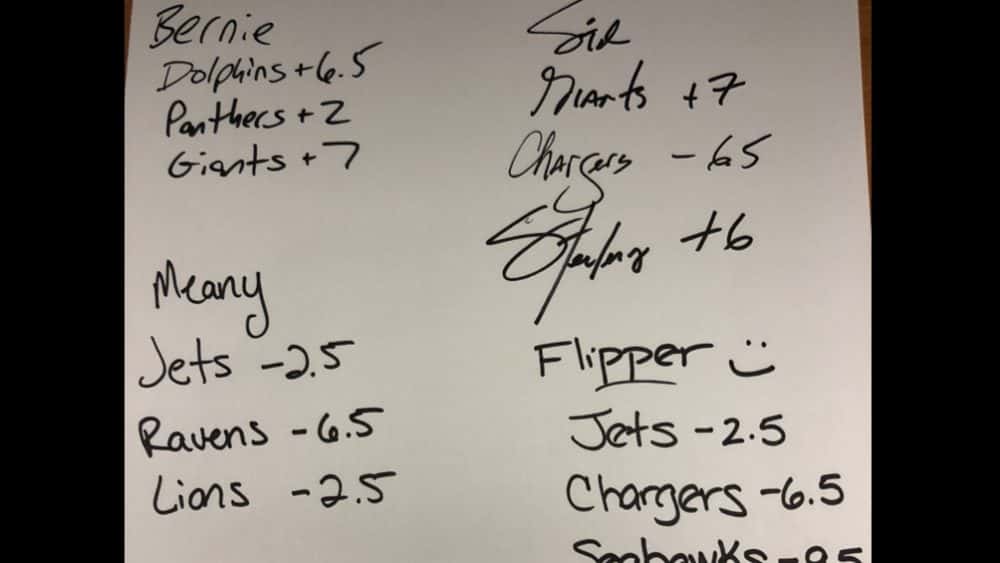 Bernie
Dolphins +6.5
Panthers + 2
Giants + 7
Meany
Jets -2.5
Ravens -6.5
Lions -2.5
Sid
Giants +7
Chargers -65
+6
Flipper
Jets -2.5
Chargers -6.5
Seahawks